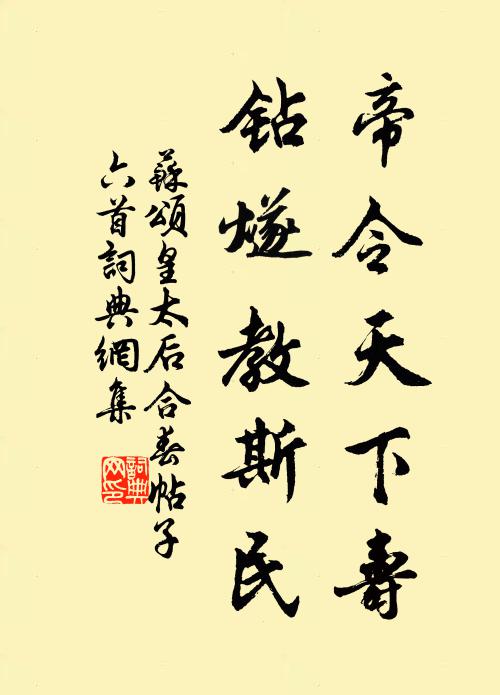 帝令天下壽
鈷燧教斯民
蘇頌皇太后合春帖子
六首詞典網集
詞典
网印